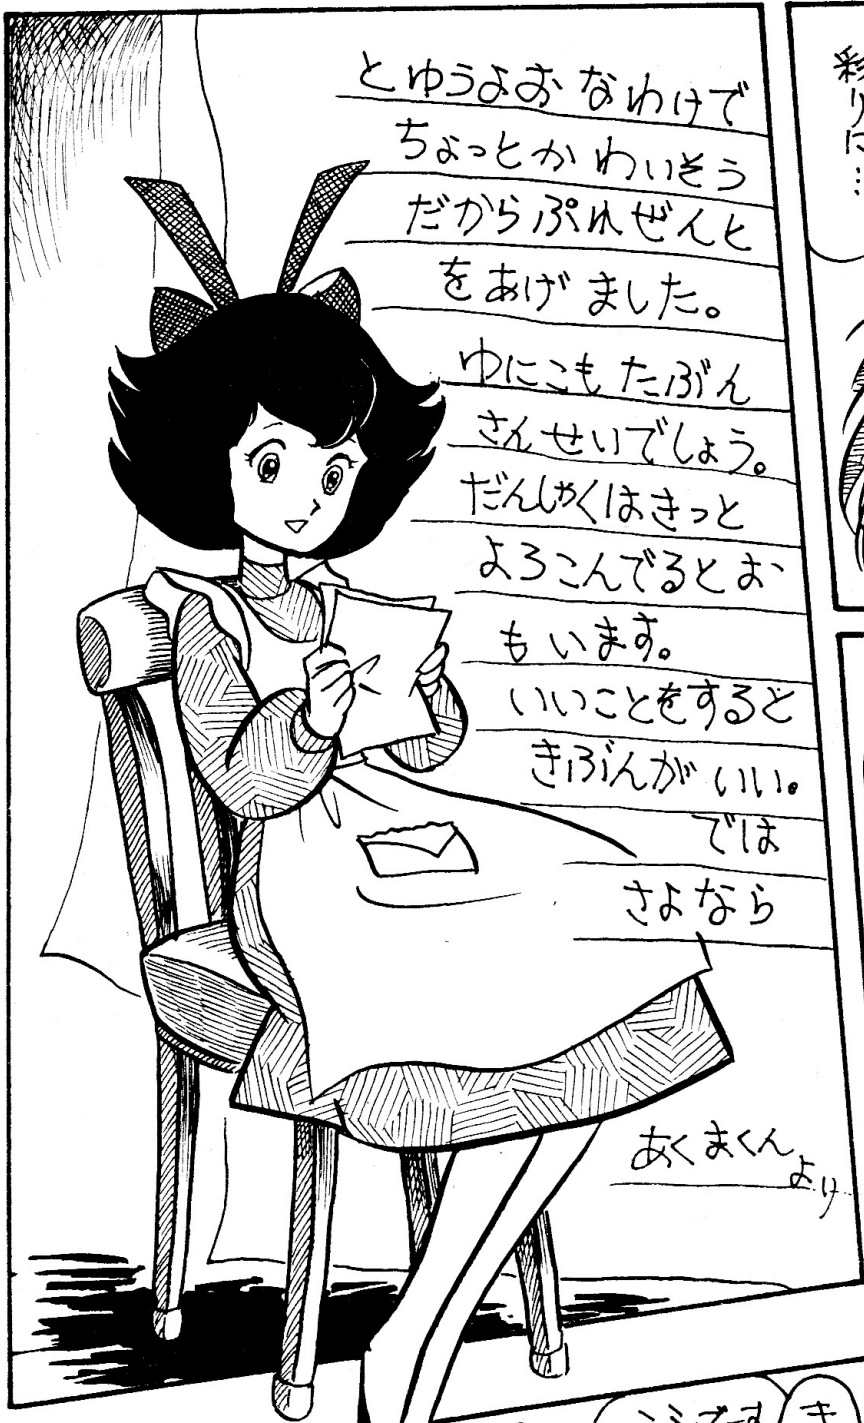 とゆうよおなわけで
ちょっとかわいそう
だからぷれぜんと
をあげました。
ゆにこもたぶん
さんせいでしょう。
だんしゃくはきっと
よろこんでるとお
もいます。
いいことをすると
きぶんがいい。
では
さよなら
あくまくん
より
彩りに…